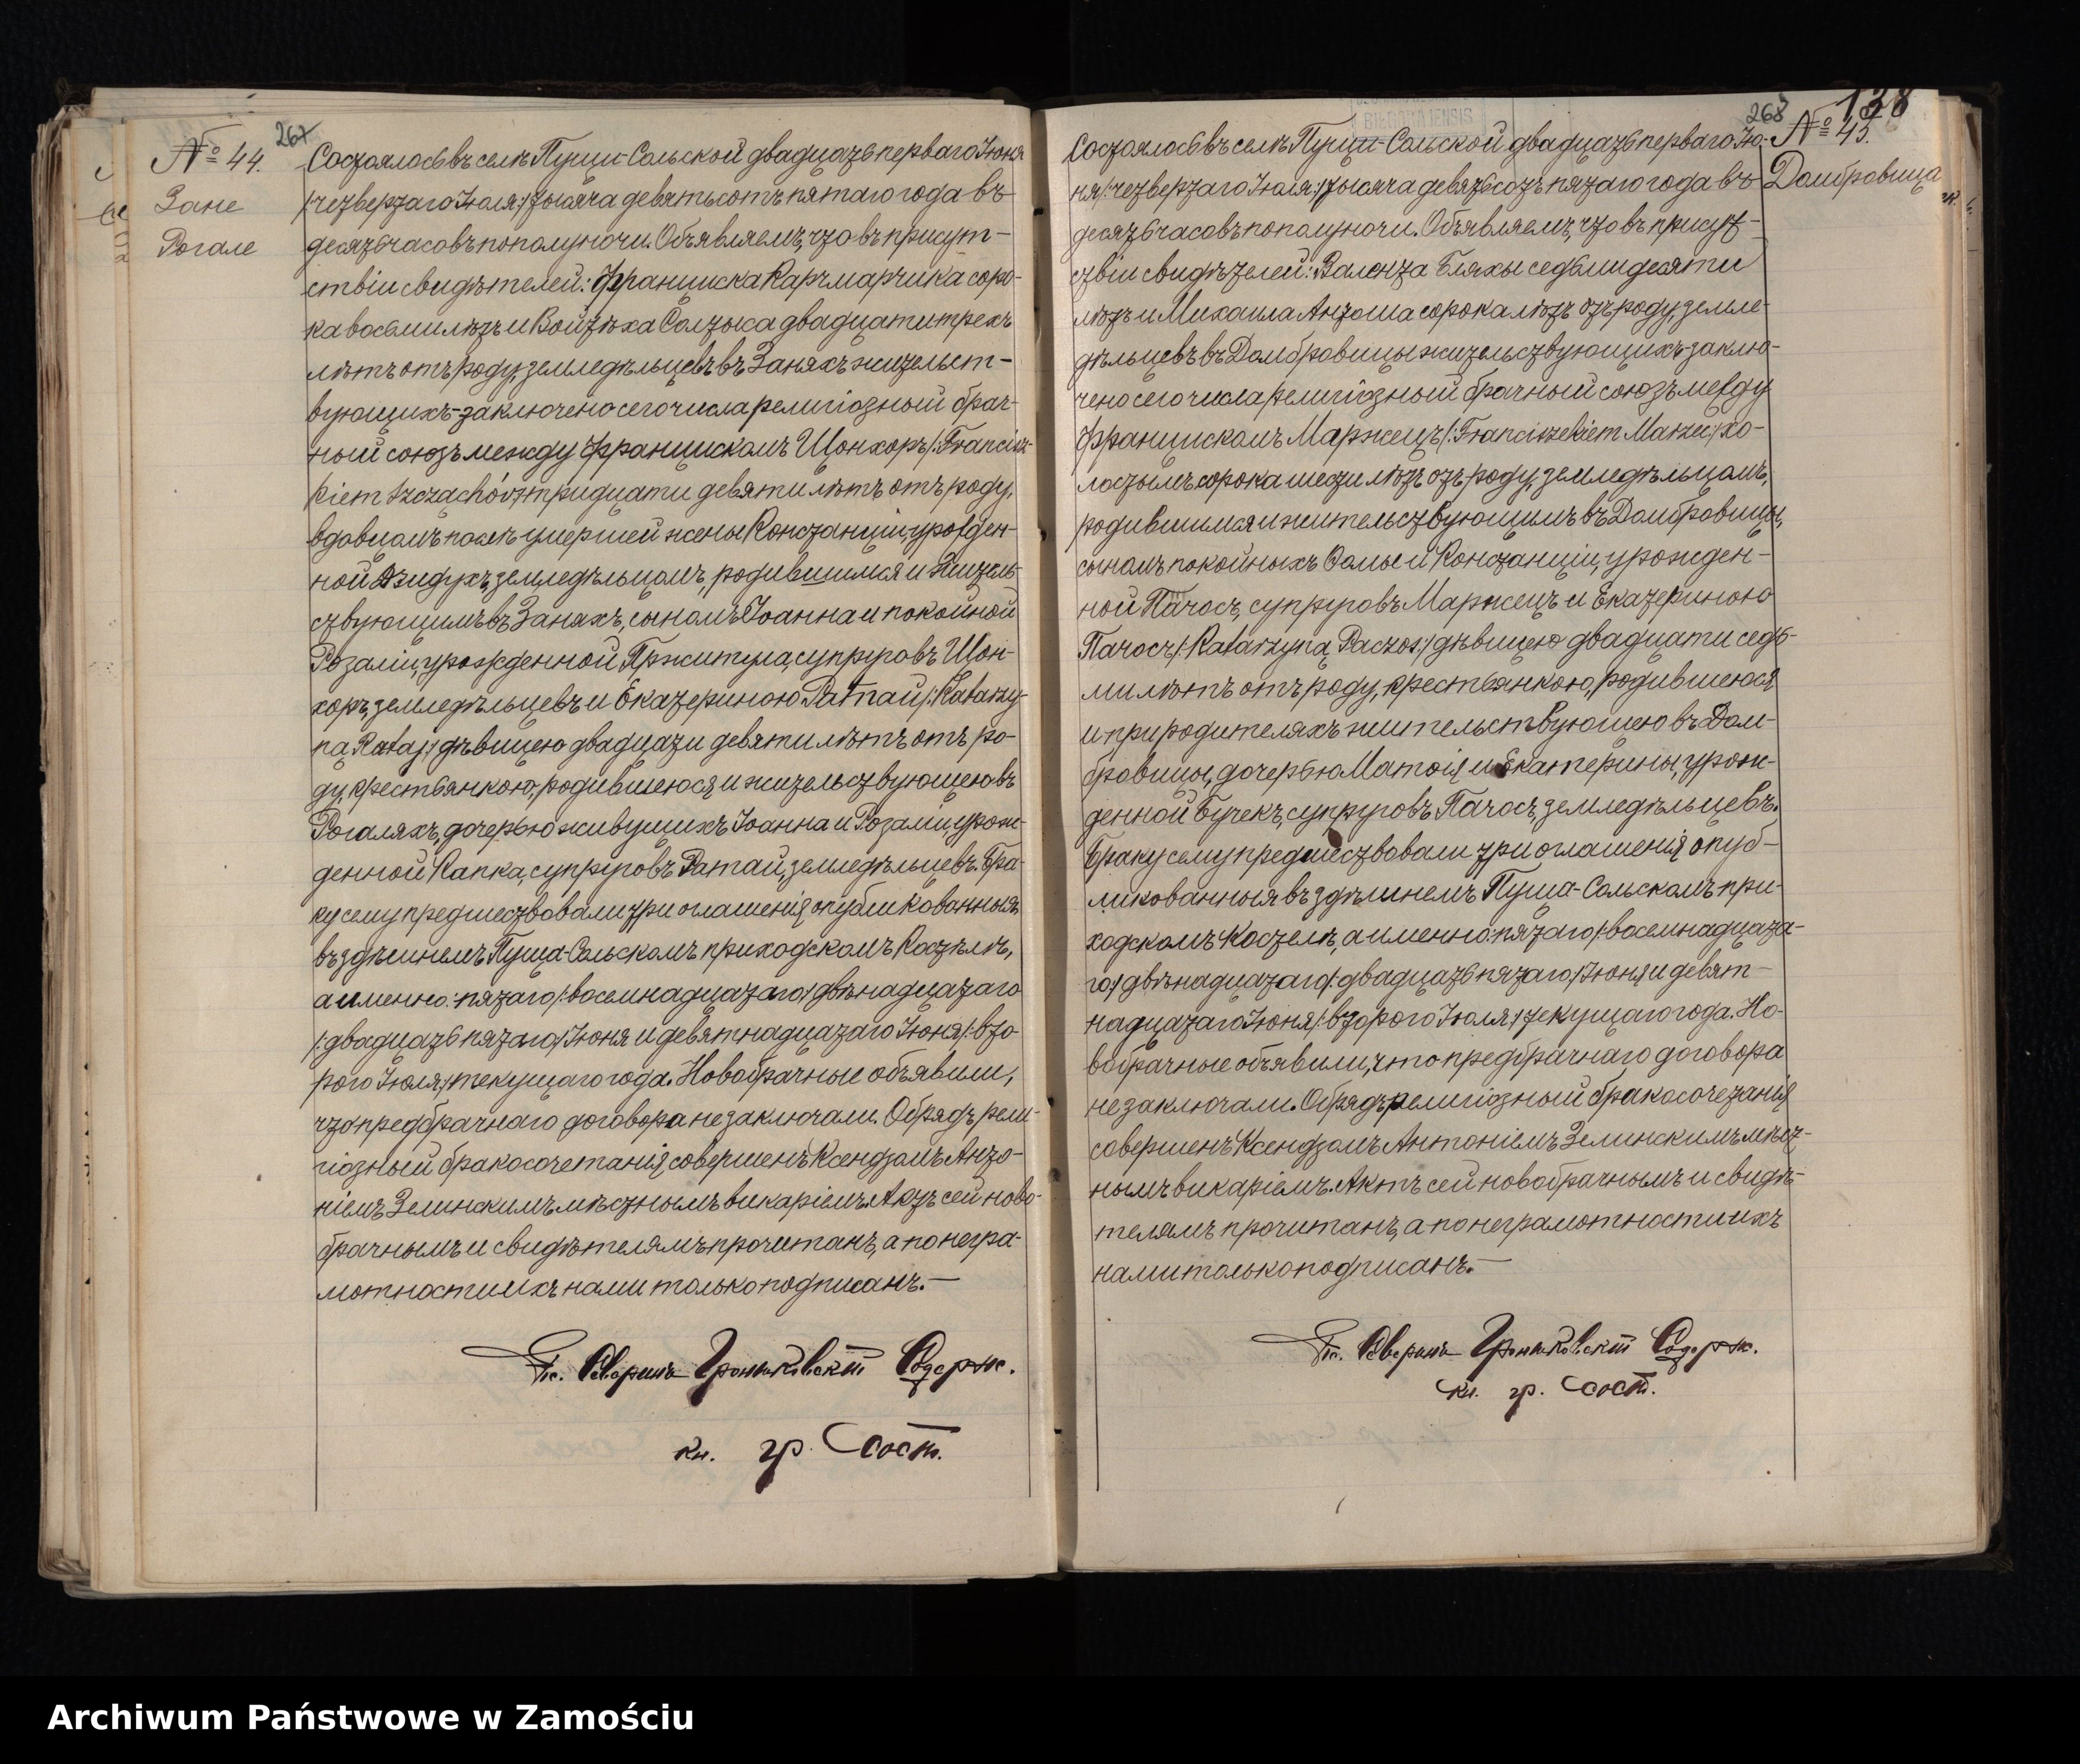 267
№ 44.
Зане
Рогале
Состоялось въ селѣ Пущи-Сольской двадцать перваго Іюня
/:четвертаго Іюля:/ тысяча девятьсотъ пятаго года въ
десять часовъ по полуночи. Объявляемъ, что въ присут-
ствіи свидѣтелей: Франциска Карчмарчика соро-
ка восьми лѣтъ и Войтѣха Солтыса двадцати трехъ
лѣтъ отъ роду, земледѣльцевъ въ Заняхъ жительст-
вующихъ-заключено сего числа религіозный брач-
ный союзъ между Францискомъ Щонхоръ /:Francisz-
kiem Szczachór:/ тридцати девяти лѣтъ отъ роду,
вдовцомъ послѣ умершей жены Констанціи, урожден-
ной земледѣльцомъ, родившимся и житель-
ствующимъ въ Заняхъ, сыномъ Іоанна и покойной
Розаліи, урожденной Пржитула, супруговъ Щон-
хоръ, земледѣльцевъ и Екатериною Ратай /:Katarzy-
ną Rataj:/ дѣвицею двадцати девяти лѣтъ отъ ро-
ду, крестьянкою, родившеюся и жительствующею въ
Рогаляхъ, дочерью живущихъ Іоанна и Розаліи, урож-
денной Капка, супруговъ Ратай, земледѣльцевъ. Бра-
ку сему предшествовали три оглашенія опубликованныя
въ здѣшнемъ Пуща-Сольскомъ приходскомъ Костелѣ,
а именно: пятаго /:восемнадцатаго:/ двѣнадцатаго
/:двадцать пятаго:/ Іюня и девятнадцатаго Іюня /:вто-
рого Іюля:/ текущаго года. Новобрачные объявили,
что предбрачнаго договора не заключали. Обрядъ рели-
гіозный бракосочетанія совершенъ Ксендзомъ Анто-
ніемъ Зелинскимъ мѣстнымъ викаріемъ. Актъ сей ново-
брачнымъ и свидѣтелямъ прочитанъ, а по негра-
мотности ихъ нами только подписанъ.—
Кс. Северинъ Содерж.
кн. гр. Сост.
268
138
№ 45.
Домбровица
Состоялось въ селѣ Пущи-Сольской двадцать перваго Ію-
ня /:четвертаго Іюля:/ тысяча девятьсотъ пятаго года въ
десять часовъ по полуночи. Объявляемъ, что въ присут-
ствіи свидѣтелей: Валента Бляхы седьмидесяти
лѣтъ и Михаила Антоша сорока лѣтъ отъ роду, земле-
дѣльцевъ въ Домбровицы жительствующихъ-заклю-
чено сего числа религіозный брачный союзъ между
Францискомъ Маржецъ /:Franciszekiem Marzec:/ хо-
лостымъ сорока шести лѣтъ отъ роду, земледѣльцомъ,
родившимся и жительствующимъ въ Домбровицы,
сыномъ покойныхъ Ѳомы и Констанціи, урожден-
ной Пачосъ, супруговъ Маржецъ и Екатериною
Пачосъ /:Katarzyną Paczos:/ дѣвицею двадцати седь-
ми лѣтъ отъ роду, крестьянкою, родившеюся
и при родителяхъ жительствующею въ Дом-
бровицы, дочерью Матѳія и Екатерины, урож-
денной Бучекъ, супруговъ Пачосъ, земледѣльцевъ.
Браку сему предшествовали три оглашенія опуб-
ликованныя въ здѣшнемъ Пуща-Сольскомъ при-
ходскомъ Костелѣ, а именно: пятаго /:восемнадцата-
го:/ двѣнадцатаго /:двадцать пятаго:/ Іюня и девят-
надцатаго Іюня /:второго Іюля:/ текущаго года. Но-
вобрачные объявили, что предбрачнаго договора
не заключали. Обрядъ религіозный бракосочетанія
совершенъ Ксендзомъ Антоніемъ Зелинскимъ мѣст-
нымъ викаріемъ. Актъ сей новобрачнымъ и свидѣ-
телямъ прочитанъ, а по неграмотности ихъ
нами только подписанъ.—
Кс. Северинъ Содерж.
кн. гр. Сост.
Archiwum Państwowe w Zamościu